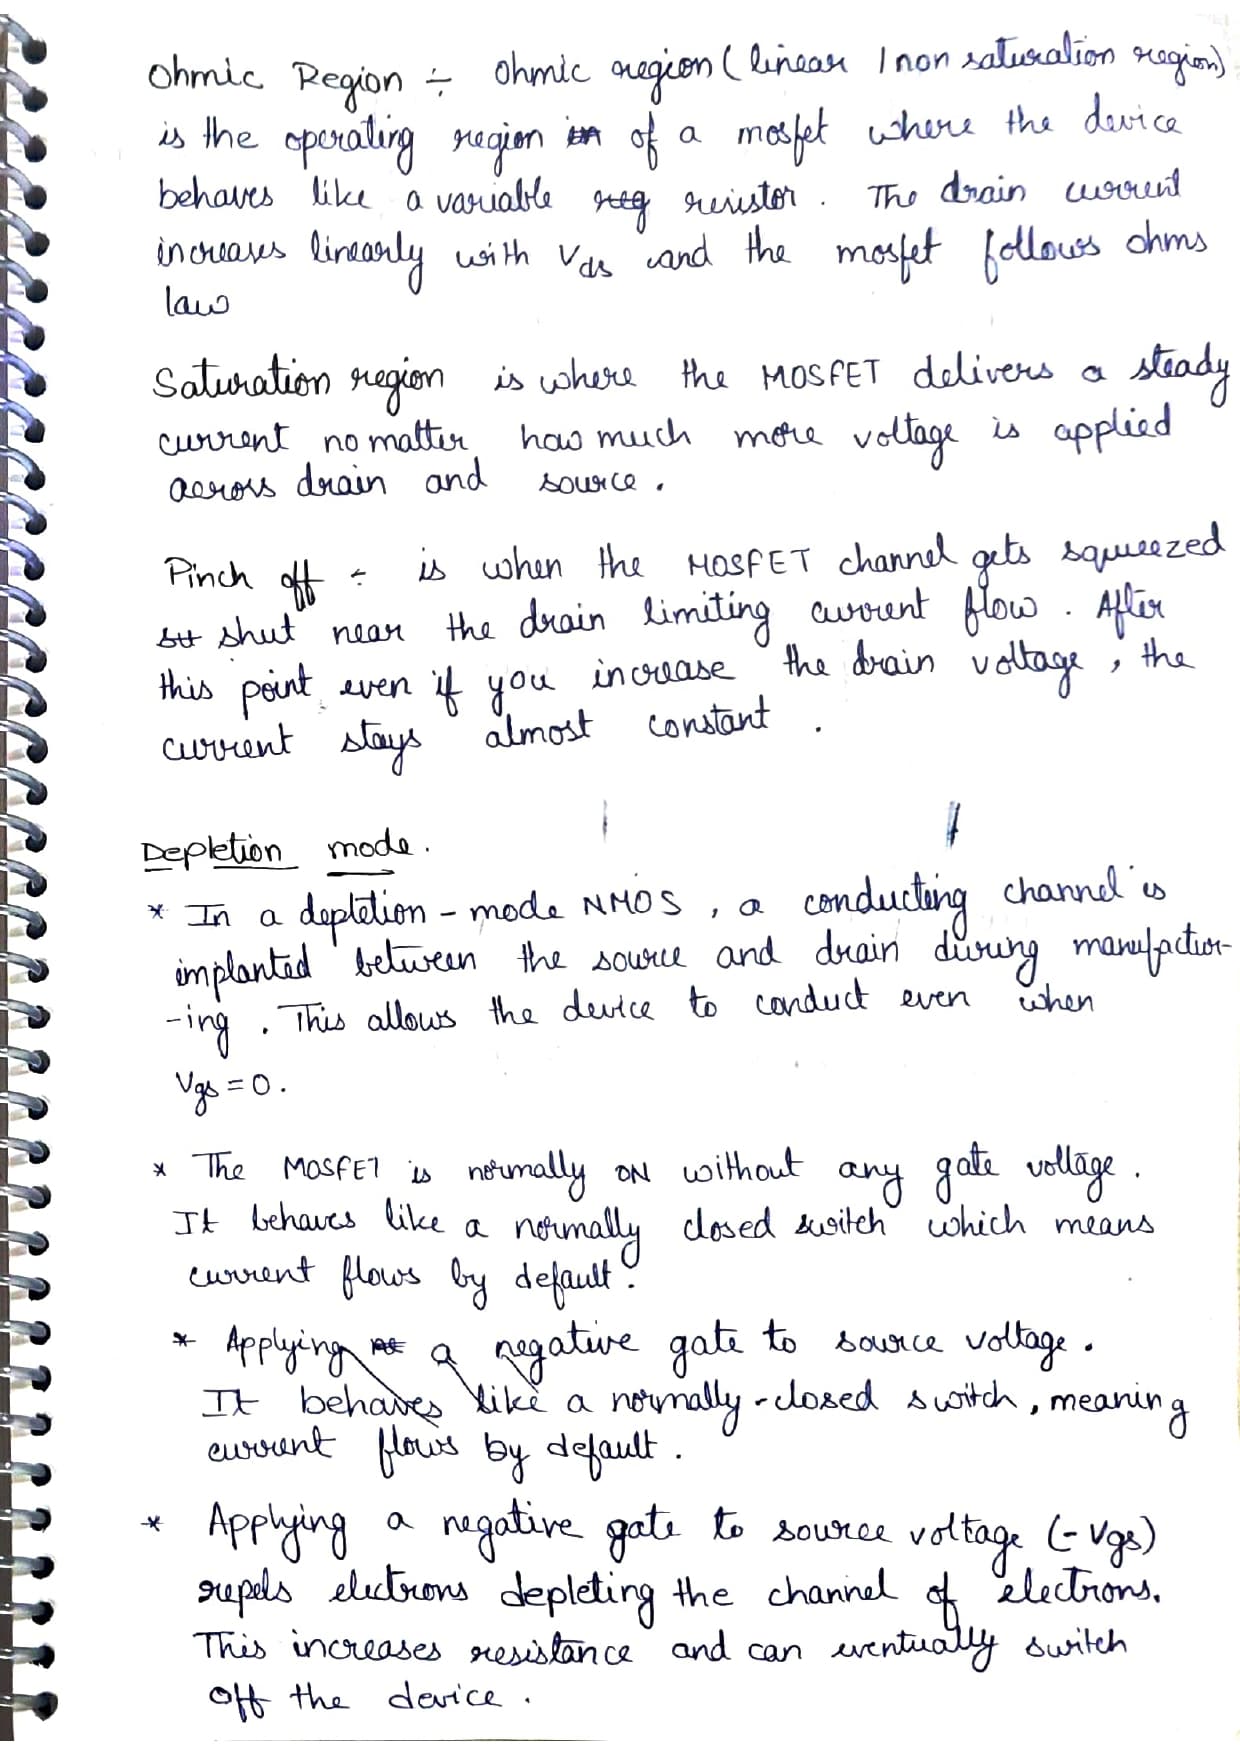 Ohmic Region ÷ ohmic region (linear / non saturation region)
is the operating region in of a mosfet where the device
behaves like a variable reg resistor. The drain current
increases linearly with Vds and the mosfet follows ohms
law
Saturation region is where the MOSFET delivers a steady
current no matter how much more voltage is applied
across drain and source.
Pinch off ÷ is when the MOSFET channel gets squeezed
shut near the drain limiting current flow. After
this point even if you increase the drain voltage, the
current stays almost constant.
Depletion mode.
* In a depletion-mode NMOS, a conducting channel is
implanted between the source and drain during manufactur-
-ing. This allows the device to conduct even when
Vgs = 0.
* The MOSFET is normally ON without any gate voltage.
It behaves like a normally closed switch which means
current flows by default.
* Applying a negative gate to source voltage.
It behaves like a normally-closed switch, meaning
current flows by default.
* Applying a negative gate to source voltage (-Vgs)
repels electrons depleting the channel of electrons.
This increases resistance and can eventually switch
off the device.